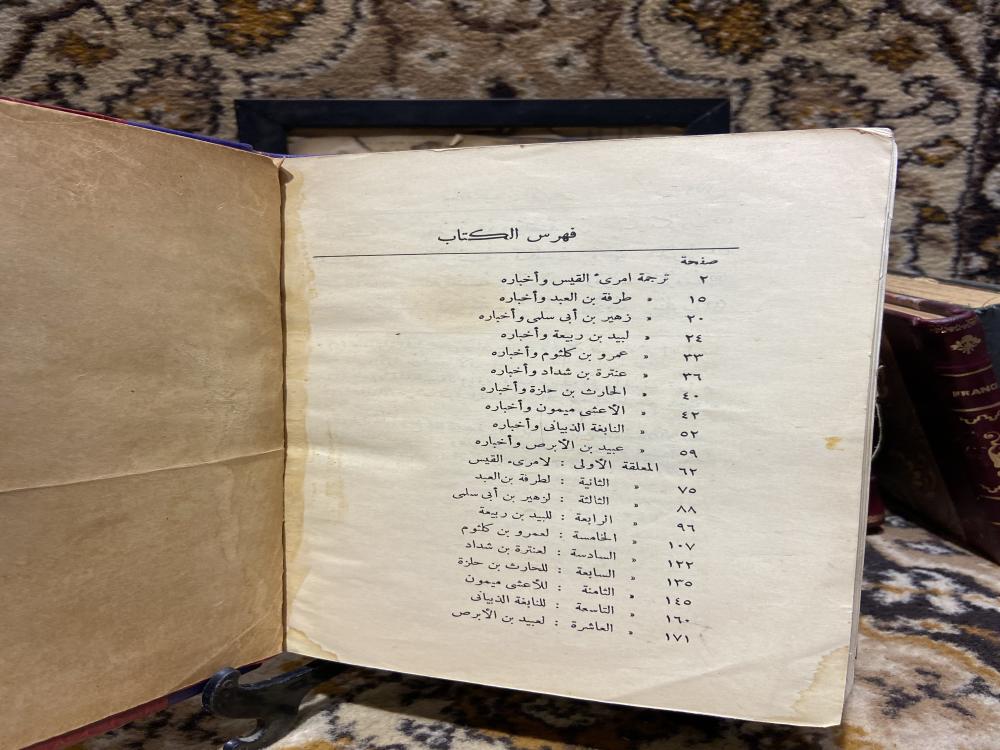 فهرس الكتاب
صفحة
٢ ترجمة امرئ القيس وأخباره
١٥ » طرفة بن العبد وأخباره
٢٠ » زهير بن أبى سلمى وأخباره
٢٤ » لبيد بن ربيعة وأخباره
٣٣ » عمرو بن كلثوم وأخباره
٣٦ » عنترة بن شداد وأخباره
٤٠ » الحارث بن حلزة وأخباره
٤٢ » الأعشى ميمون وأخباره
٥٢ » النابغة الذبيانى وأخباره
٥٩ » عبيد بن الأبرص وأخباره
٦٢ المعلقة الأولى : لامرىء القيس
٧٥ » الثانية : لطرفة بن العبد
٨٨ » الثالثة : لزهير بن أبى سلمى
٩٦ » الرابعة : للبيد بن ربيعة
١٠٧ » الخامسة : لعمرو بن كلثوم
١٢٢ » السادسة : لعنترة بن شداد
١٣٥ » السابعة : للحارث بن حلزة
١٤٥ » الثامنة : للأعشى ميمون
١٦٠ » التاسعة : للنابغة الذبيانى
١٧١ » العاشرة : لعبيد بن الأبرص